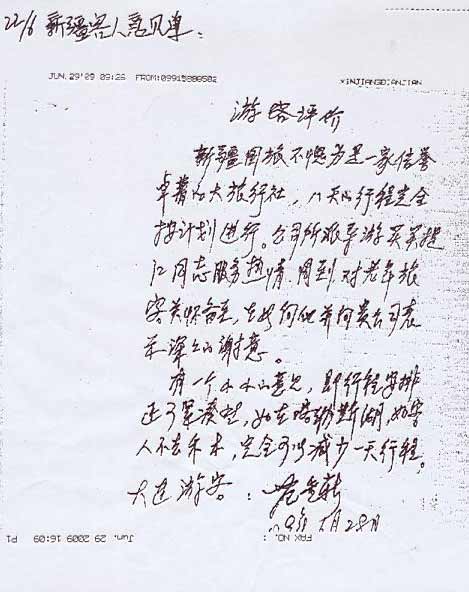 22/6 新疆客人意见单.
JUN.29'09 09:26 FROM:09915888502
XINJIANGDIANJIAN
游客评价
新疆国旅不愧为是一家信誉
卓著的大旅行社,八天的行程完全
按计划进行。公司所派导游买买提
江同志服务热情、周到对老年旅
客关怀备至,在此向他并向贵公司表
示深深的谢意。
有一个小小的意见,即行程安排
还可紧凑些,如在喀纳斯湖,如客
人不去禾木,完全可以减少一天行程。
大连游客:
09年6月28日
FAX NO. :
Jun. 29 2009 16:09 P1